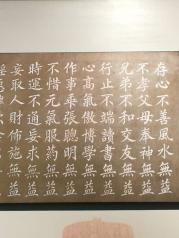 存心不善風水無益
不孝父母奉神無益
兄弟不和交友無益
行止不端讀書無益
心高氣傲博學無益
作事乖張聰明無益
不惜元氣服藥無益
時運不通妄求無益
妄取人財佈施無益